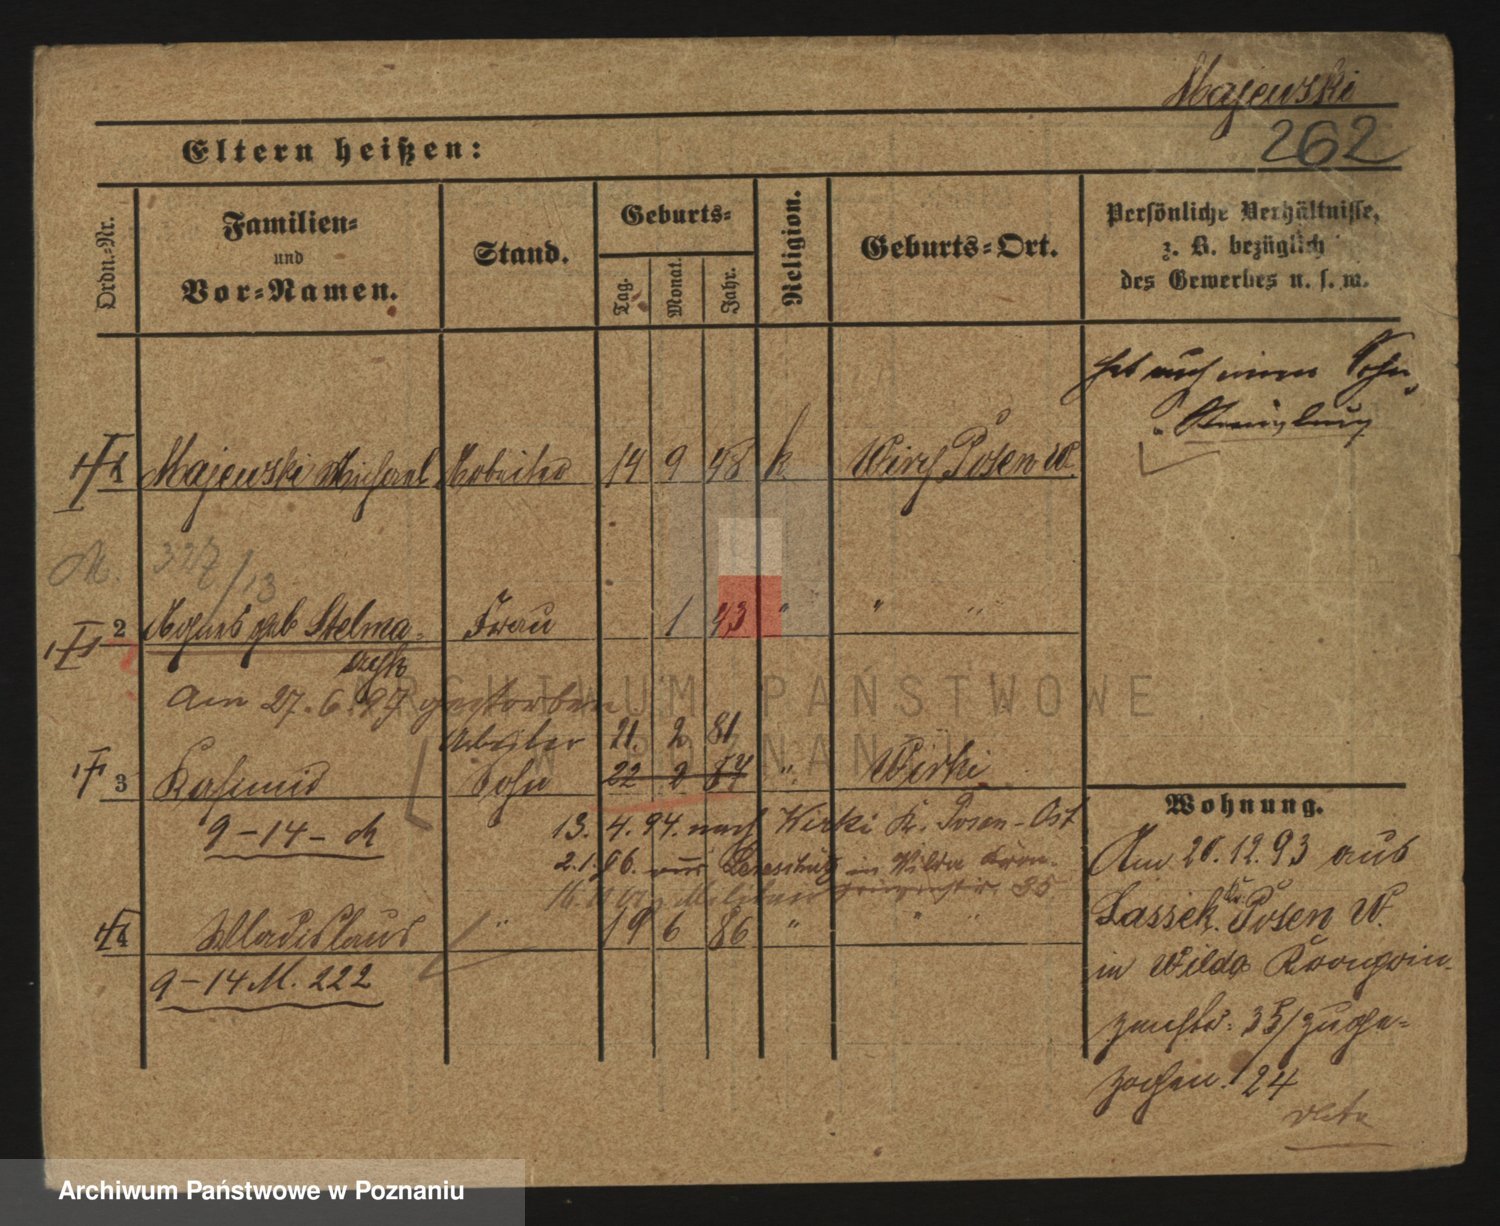 Majewski
262
Eltern heißen:
Ordn.-Nr.
Familien-
und
Vor-Namen.
Stand.
Geburts-
Tag.
Monat.
Jahr.
Religion.
Geburts-Ort.
Persönliche Verhältnisse,
z. B. bezüglich
des Gewerbes u. s. w.
hat auch einen Sohn
1 Majewski Michael Arbeiter 14 9 48 k. Posen W.
2 Agnes geb Stelma- Frau 1 43 " " "
czyk
Am 27.6.97 gestorben
Arbeiter 21. 2 81
3 Kasimir Sohn 22 2 87 " Wirki
9-14-
13. 4. 94. nach Wirki Kr. Posen-Ost
2.1.96. aus in Wilda Kron-
35
4 Wladislaus " 19 6 86 " " "
9-14 M. 222
Wohnung.
Am 20.12.93 aus
Lassek Kr. Posen W.
in Wilda Kronprin-
zenstr: 35/ zuge-
zogen. 24
ARCHIWUM PAŃSTWOWE
W POZNANIU
Archiwum Państwowe w Poznaniu